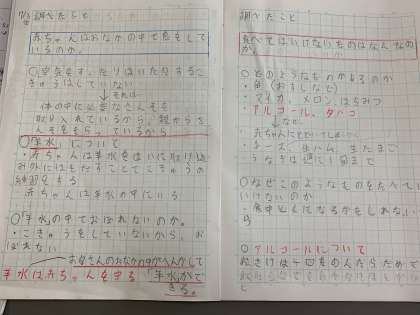 7/3 調べたこと
赤ちゃんはおなかの中で息をして
いるのか。
○空気をすったりはいたりするこ
きゅうはしていない
それは…
体の中に必要なさんそを
取り入れているから、親からさ
んそをもらっているから
○「羊水」について
・赤ちゃんは羊水をはいに取り込
み外にはきだすことでこきゅうの
練習をする
赤ちゃんは羊水の中にいる
○「羊水」の中でおぼれないのか。
・こきゅうをしていないから、お
ぼれない
お母さんのおなかの中がへんかして
羊水は赤ちゃんを守る「羊水」がで
きる。
調べたこと
食べてはいけないものはなんなの
か。
○どのようなものがあるのか
・魚(おすしなど)
・マンガ、メロン、はちみつ
・アルコール、タバコ
など…
赤ちゃんにとどいてしまうから
・チーズ、生ハム、生たまご
○なぜこのようなものをたべては
いけないのか
・食中どくになるかもしれない
から
○アルコールについて
おさけは一口をのんだらだめで